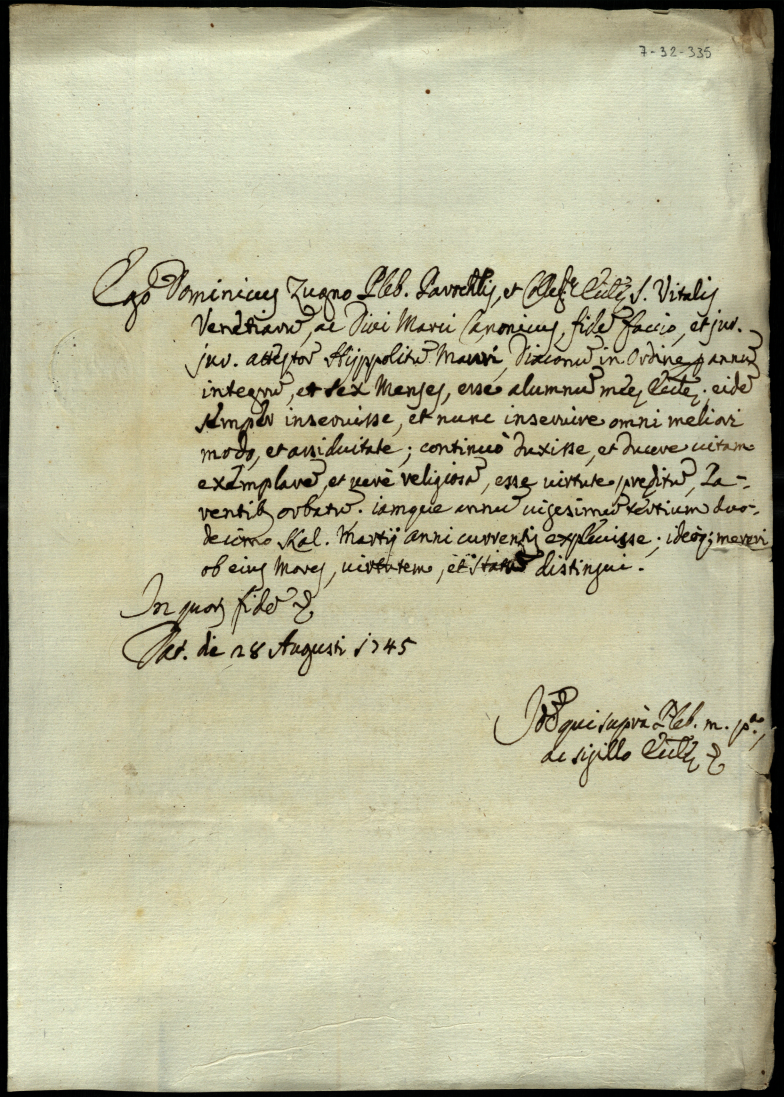 7-32-335
Ego Dominicus Zugno Pleb. et S. Vitalis
Venetiarũ, ac Divi Marci Canonicus, fidẽ facio, et jur.
jur. attestor Hyppolitũ Diaconũ in Ordine p annũ
integrũ, et sex Menses, esse alumnũ meę Eccłę; eidẽ
semper inservisse, et nunc inservire omni meliori
modo, et assiduitate; continuò duxisse, et ducere vitam
exemplarẽ, et verè religiosã, esse virtute preditũ, Pa-
rentib9 orbatũ. iamque annũ vigesimũ tertium duo-
decimo Kal. Martij anni currentis explevisse; ideoq; mereri
ob eius Mores, virtutem, et statũ distingui.
In quorũ fidẽ &
Dat. die 28 Augusti 1745
Idẽ qui suprà Pleb. m. p.ª,
ac sigillo Eccłę &